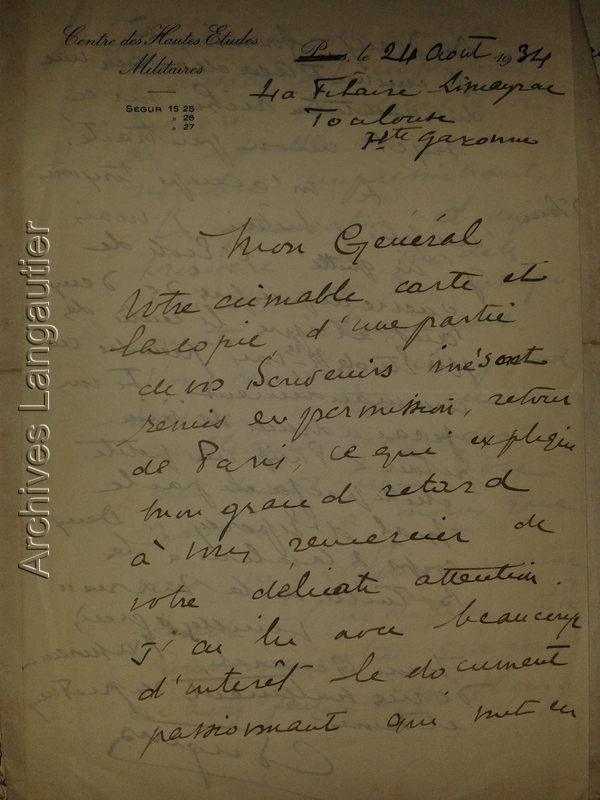 Centre des Hautes Etudes
Militaires
SÉGUR 15 25
" 26
" 27
Paris, le 24 Aout 1934
4a Filaire Limayrac
Toulouse
Hte Garonne
Mon Général
Votre aimable carte et
la copie d'une partie
de vos Souvenirs me sont
remis en permission, retour
de Paris, ce qui explique
mon grand retard
à vous remercier de
votre délicate attention.
J'ai lu avec beaucoup
d'intérêt le document
passionnant qui met en
Archives Langautier